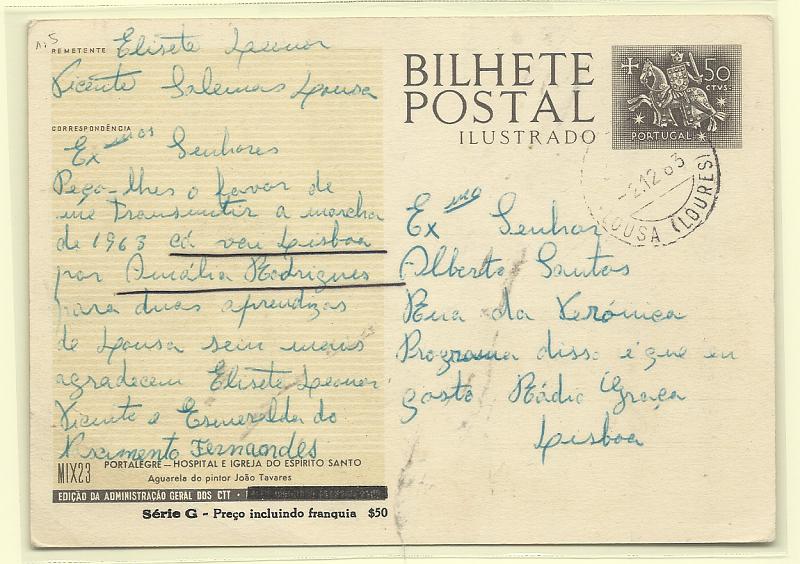 REMETENTE Elisete Leonor
Vicente Salemas Lousa
CORRESPONDÊNCIA
Exmos Senhores
Peço-lhes o favor de
me transmitir a marcha
de 1963 cá vai Lisboa
por Amália Rodrigues
para duas aprendizas
de Lousa sem mais
agradecem Elisete Leonor
Vicente e Esmeralda do
Nascimento Fernandes
MIX23
PORTALEGRE — HOSPITAL E IGREJA DO ESPÍRITO SANTO
Aguarela do pintor João Tavares
EDIÇÃO DA ADMINISTRAÇÃO GERAL DOS CTT
Série G - Preço incluindo franquia $50
BILHETE
POSTAL
ILUSTRADO
50
CTVS.
PORTUGAL
-2.12 63
LOUSA (LOURES)
Exmo Senhor
Alberto Santos
Rua da Verónica
Programa disso é que eu
gosto Rádio Graça
Lisboa